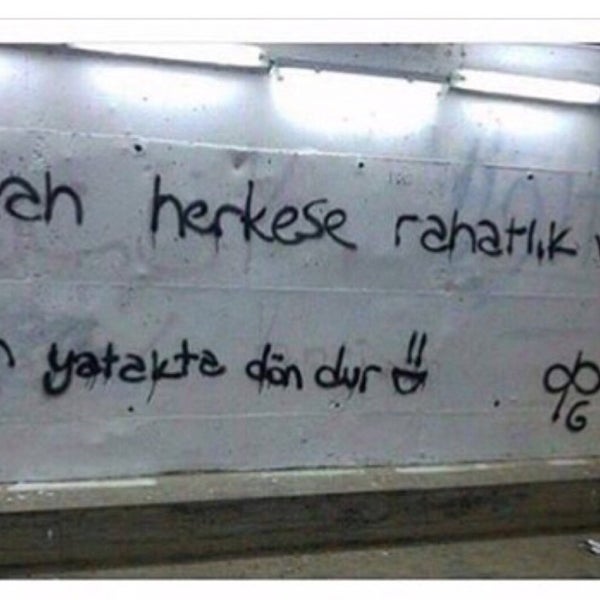 herkese rahatlık
yatakta dön dur